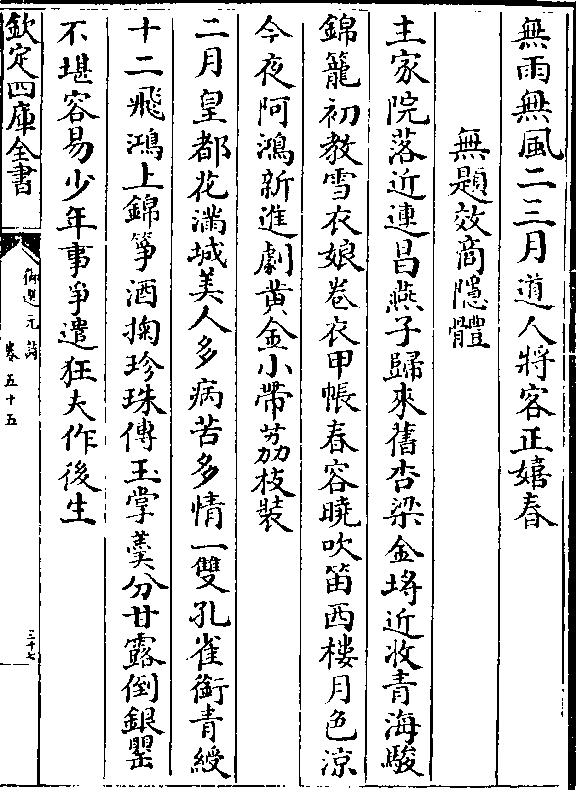 無雨無風二三月道人將客正嬉春
無題效商隱體
主家院落近連昌燕子歸來舊杏梁金埒近收青海駿
錦籠初教雪衣娘卷衣甲帳春容曉吹笛西樓月色涼
今夜阿鴻新進劇黄金小帶荔枝裝
二月皇都花滿城美人多病苦多情一雙孔雀銜青綬
十二飛鴻上錦箏酒掬珍珠傳玉掌羮分甘露倒銀罌
不堪容易少年事爭遣狂夫作後生
欽定四庫全書
御選元詩
卷五十五
三十七